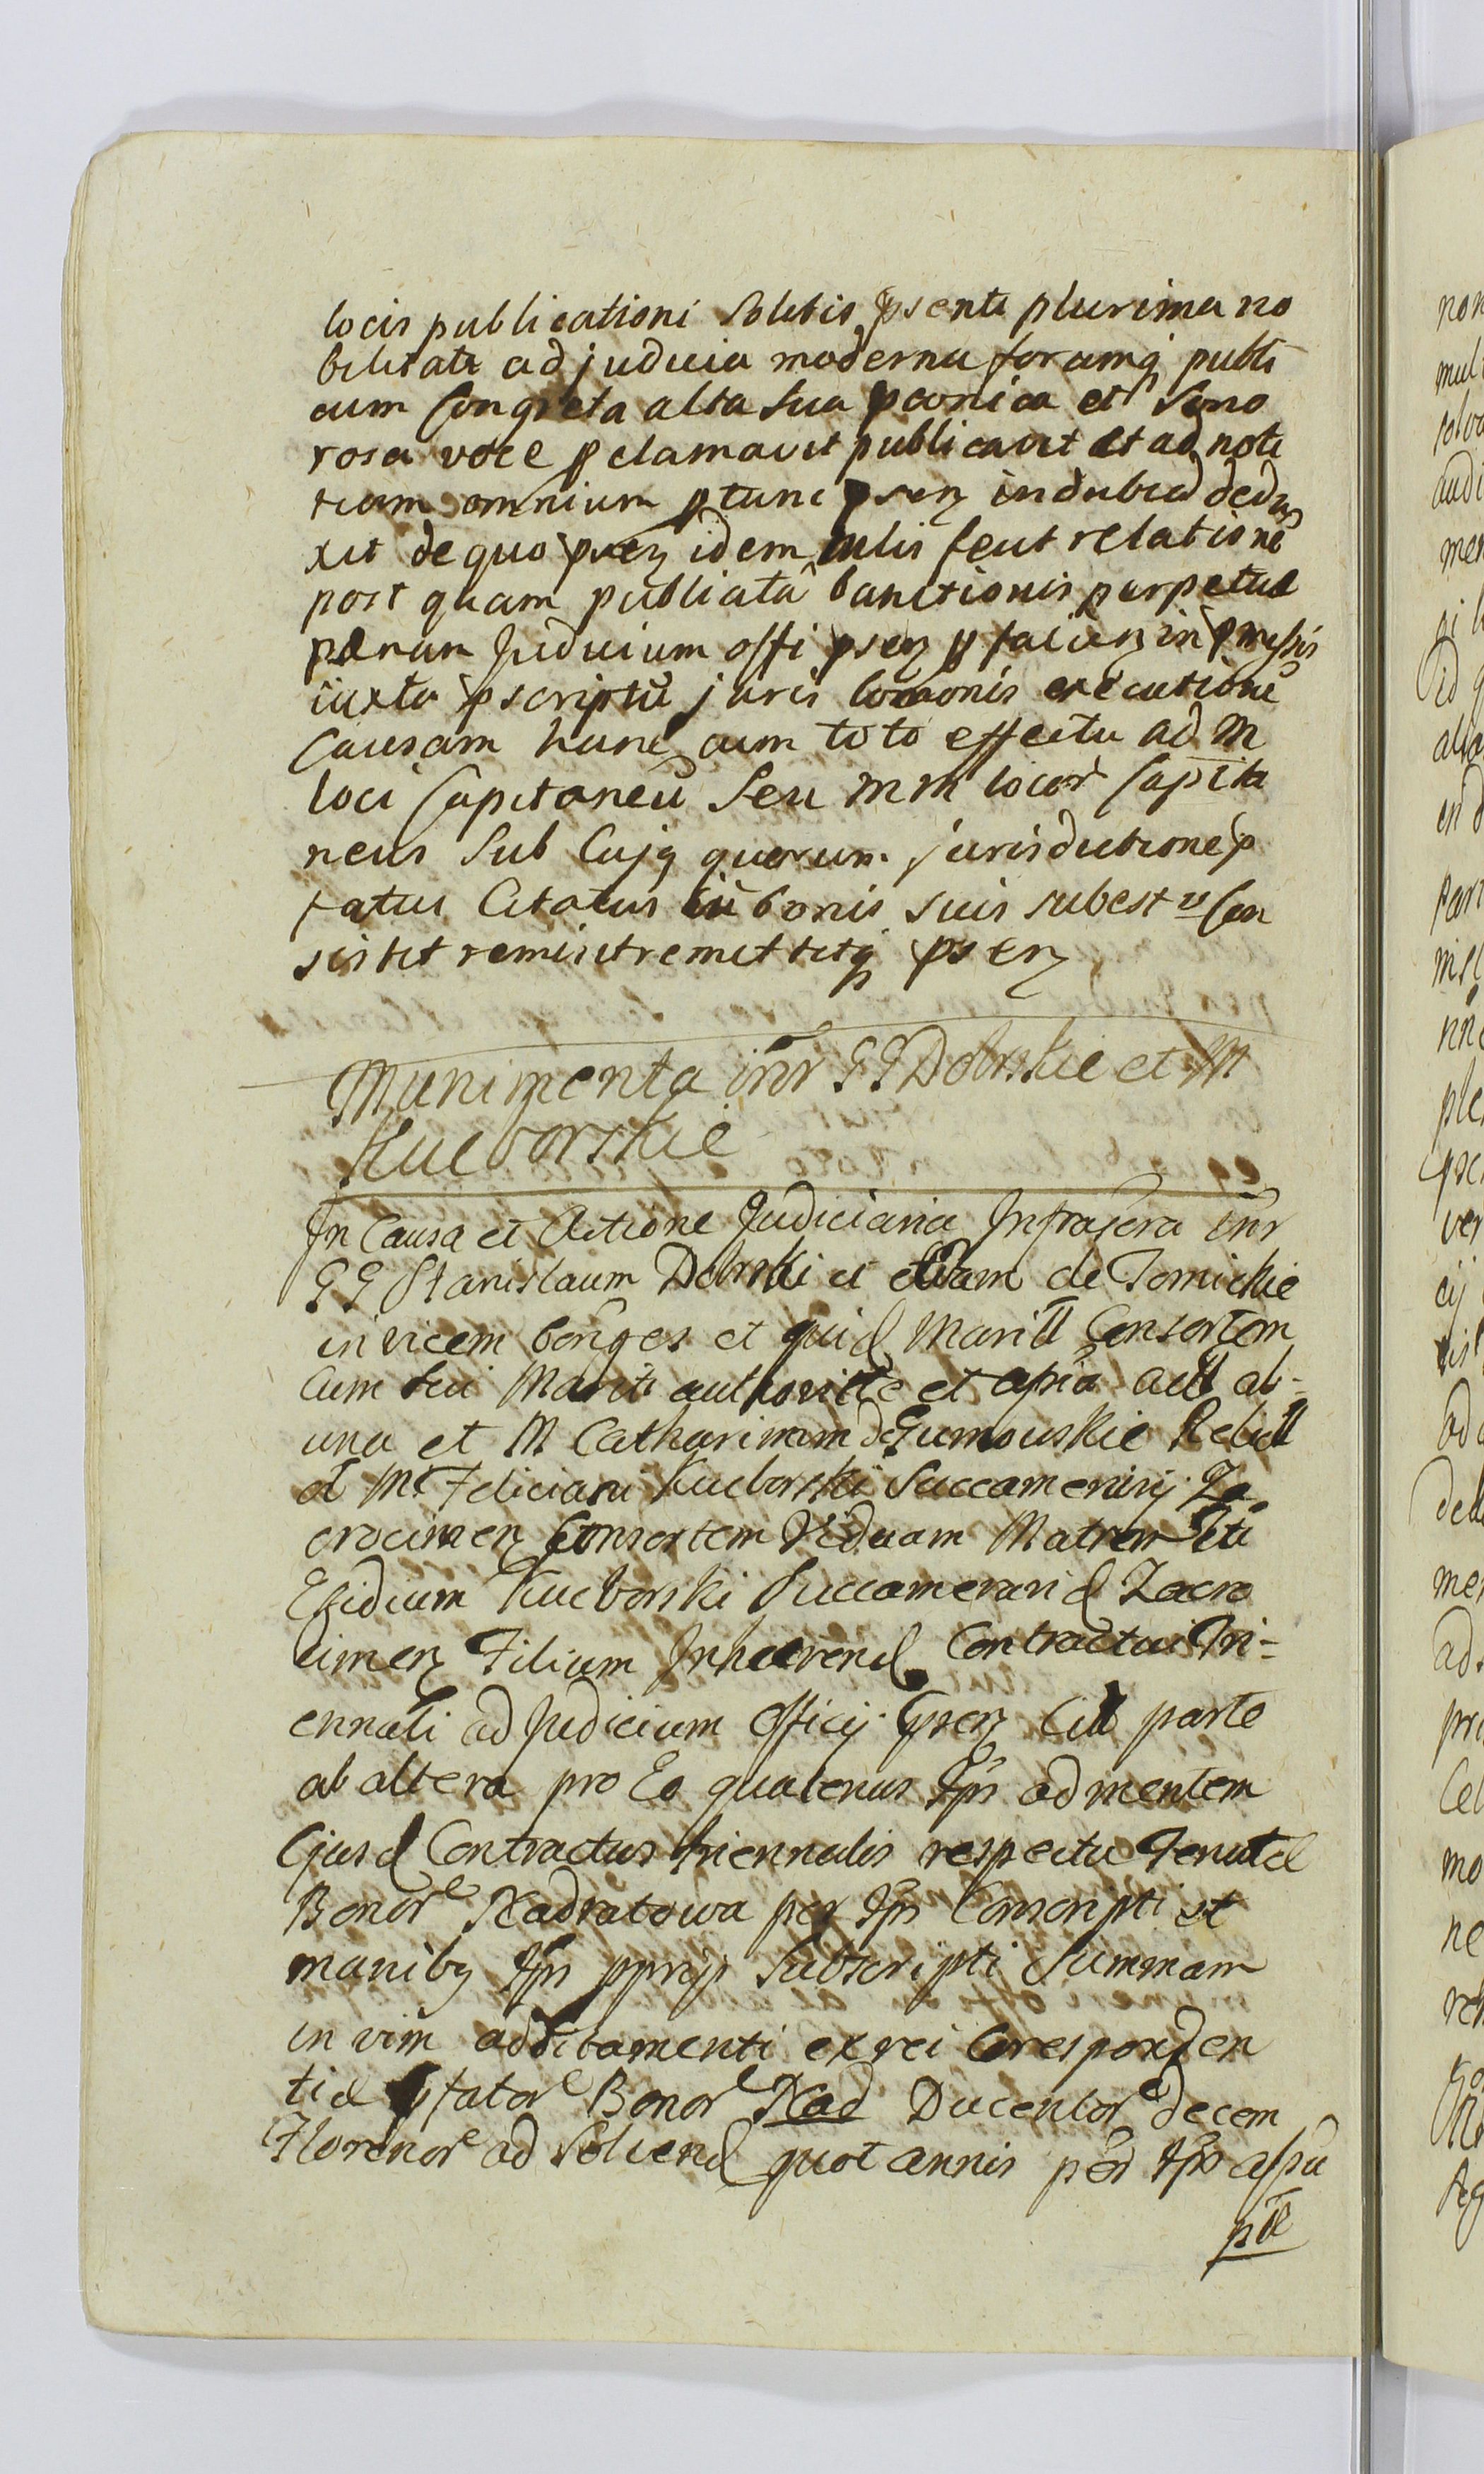 locis publicationi solitis psente plurima no
bilitate ad judicia moderna forumq publi
cum congreta alta sua praeonica et sono
rosa voce pclamavit publicavit et ad noti
tiam omnium ptunc psen indubiad dedu
xit de quo psen idem mlis fecit relatione
post quam publicatã banitionis perpetuæ
pænam Judicium offi psen p facien in pmissis
iuxta pscriptũ juris comonis executione
Causam hanc cum toto effectu ad M
loci Capitaneũ seu MM locor Capita
neus sub Cujq quorum jurisdictione p
fatus Citatus in bonis suis subest v con
sistit remisit remittitq psen
Munimenta inr GG Dobrskie et M
Kucborskie
In Causa et Actione Judiciaria Infrascra inr
GG Stanislaum Dobrski et Evam de Tomickie
invicem conges et quid Maritt Consortem
cum sui Mariti authoritte et apria actt ab-
una et M Catharinam de Gumowskie Relictt
d Mci Feliciani Kucborski Succamerarij Za
crocimen Consortem Viduam Matrem Titi
Egidium Kucborski Succamerarid Zacro
cimen Filium Inhærend Contractui Tri=
ennali ad Judicium Officij psen Citt parte
ab altera pro Eo quatenus Ipsi ad mentem
Ejusd Contractus triennalis respectu Tenutæ
Bonor Nadratowa per Ipsos Conscripti et
manibq Ipsor pprijs Subscripti Summam
in vim additamenti ex rei Coresponden
tiæ pfator Bonor Nad Ducentor decem
Florenor ad solvend quot annis per Ipsos assu
ptæ